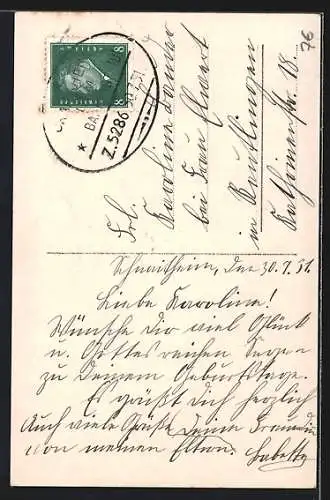 76
8 8
Z.5286
31
Frl.
Karoline
bei Frau
in Reutlingen
Str. 18.
Schnaitheim, den 30.7.31.
Liebe Karoline!
Wünsche Dir viel Glück
u. Gottes reichen Segen
zu Deinem Geburtstage.
Es grüßt Dich herzlich
Deine Freundin
Babette
Auch viele Grüße
von meinen Eltern.